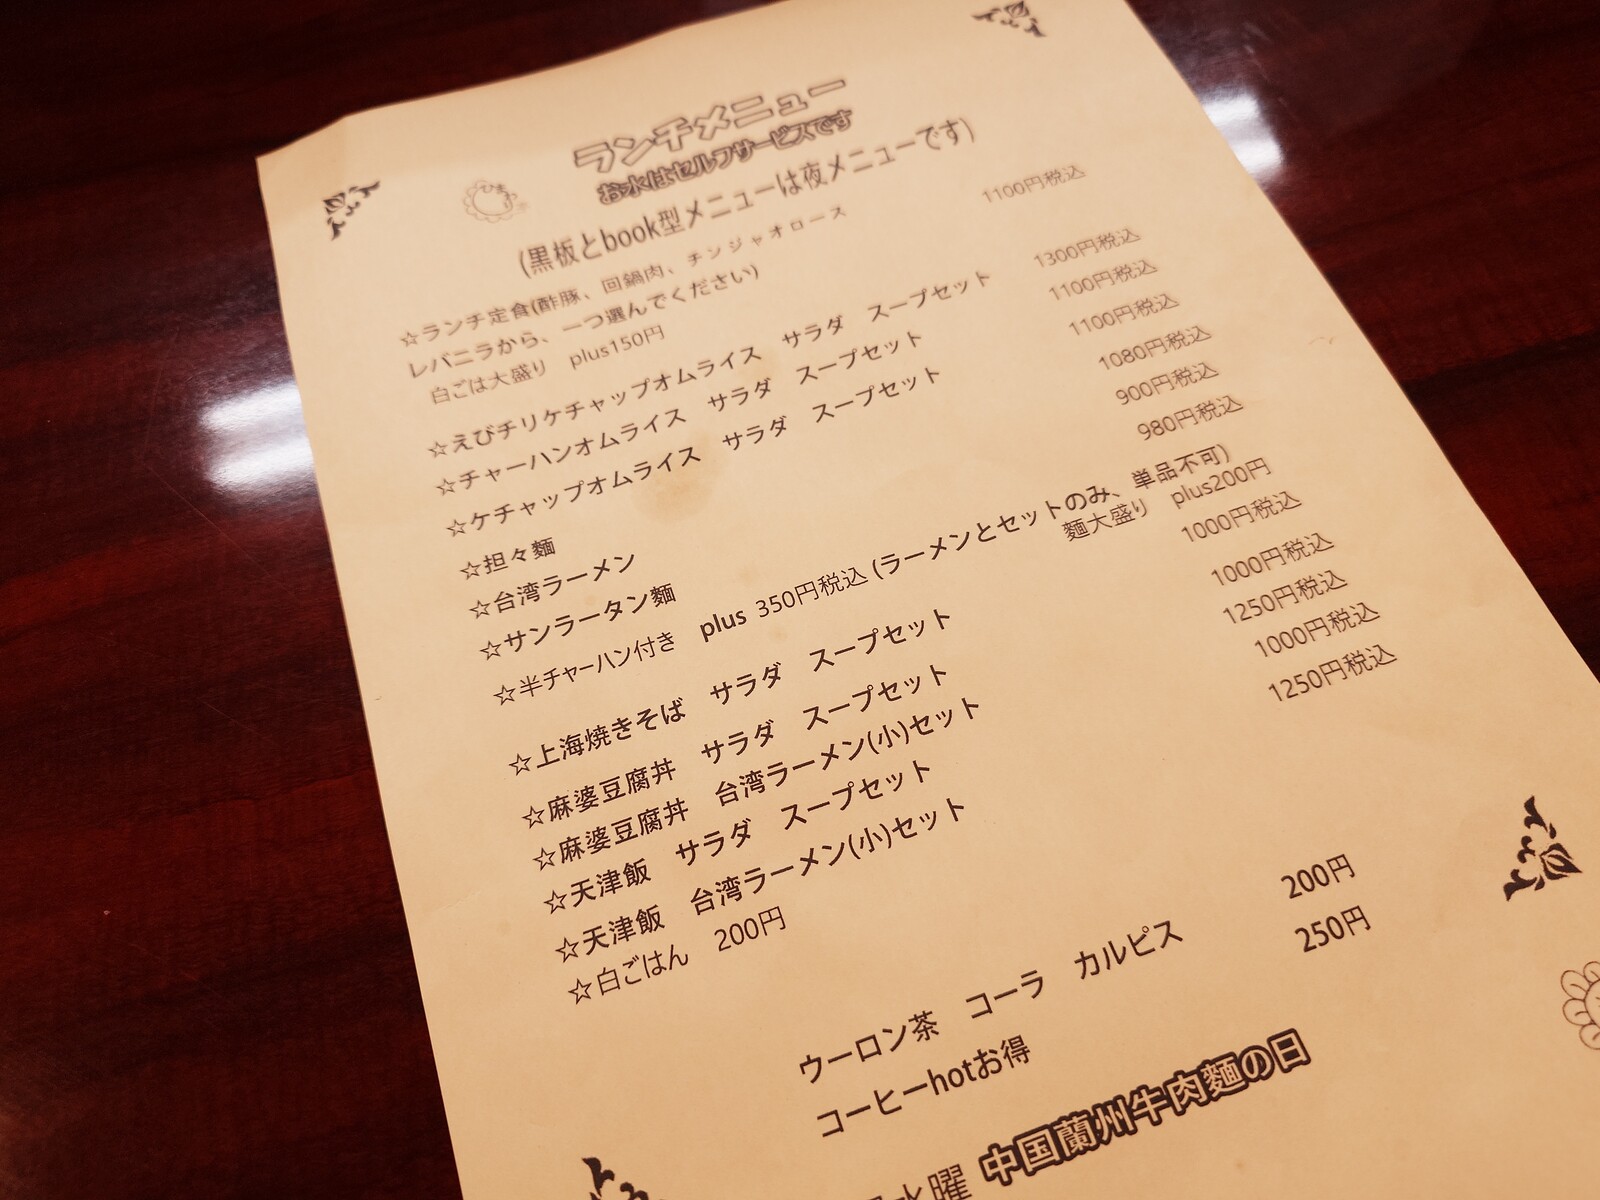 ランチメニュー
お水はセルフサービスです
(黒板とbook型メニューは夜メニューです)
☆ランチ定食(酢豚、回鍋肉、チンジャオロース 1100円税込
レバニラから、一つ選んでください)
白ごは大盛り plus150円
☆えびチリケチャップオムライス サラダ スープセット 1300円税込
☆チャーハンオムライス サラダ スープセット 1100円税込
☆ケチャップオムライス サラダ スープセット 1100円税込
☆担々麵 1080円税込
☆台湾ラーメン 900円税込
☆サンラータン麵 980円税込
☆半チャーハン付き plus 350円税込 (ラーメンとセットのみ、単品不可)
麵大盛り plus200円
☆上海焼きそば サラダ スープセット 1000円税込
☆麻婆豆腐丼 サラダ スープセット 1000円税込
☆麻婆豆腐丼 台湾ラーメン(小)セット 1250円税込
☆天津飯 サラダ スープセット 1000円税込
☆天津飯 台湾ラーメン(小)セット 1250円税込
☆白ごはん 200円
ウーロン茶 コーラ カルピス 200円
コーヒーhotお得 250円
水曜 中国蘭州牛肉麵の日